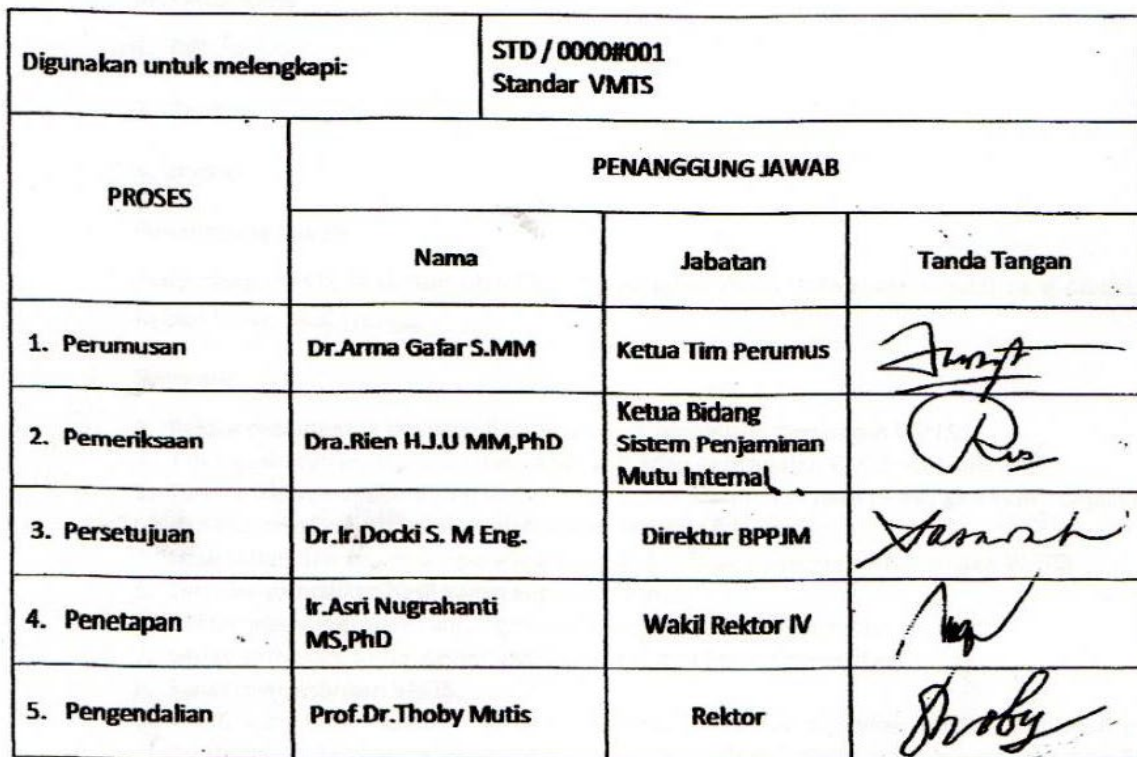 Digunakan untuk melengkapi:
STD / 0000#001
Standar VMTS
PROSES
PENANGGUNG JAWAB
Nama
Jabatan
Tanda Tangan
1. Perumusan
Dr.Arma Gafar S.MM
Ketua Tim Perumus
2. Pemeriksaan
Dra.Rien H.J.U MM,PhD
Ketua Bidang
Sistem Penjaminan
Mutu Internal
3. Persetujuan
Dr.Ir.Docki S. M Eng.
Direktur BPPJM
4. Penetapan
Ir.Asri Nugrahanti
MS,PhD
Wakil Rektor IV
5. Pengendalian
Prof.Dr.Thoby Mutis
Rektor